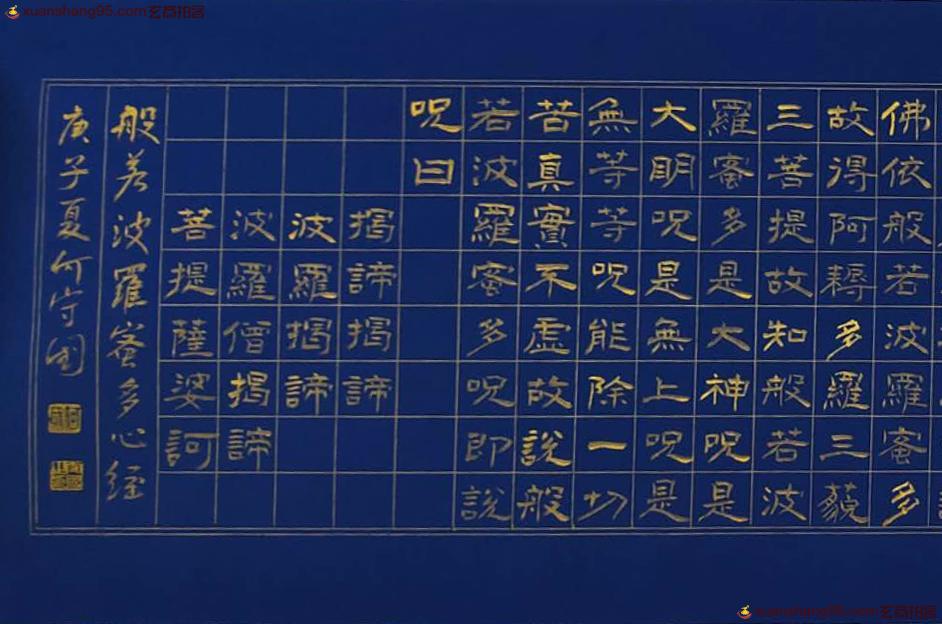 xuanshang95.com玄商拍客
佛依般若波羅蜜多
故得阿耨多羅三藐
三菩提故知般若波
羅蜜多是大神呪是
大明呪是無上呪是
無等等呪能除一切
苦真實不虛故說般
若波羅蜜多呪即說
呪曰
揭諦揭諦
波羅揭諦
波羅僧揭諦
菩提薩婆訶
般若波羅蜜多心経
庚子夏何守國
xuanshang95.com玄商拍客